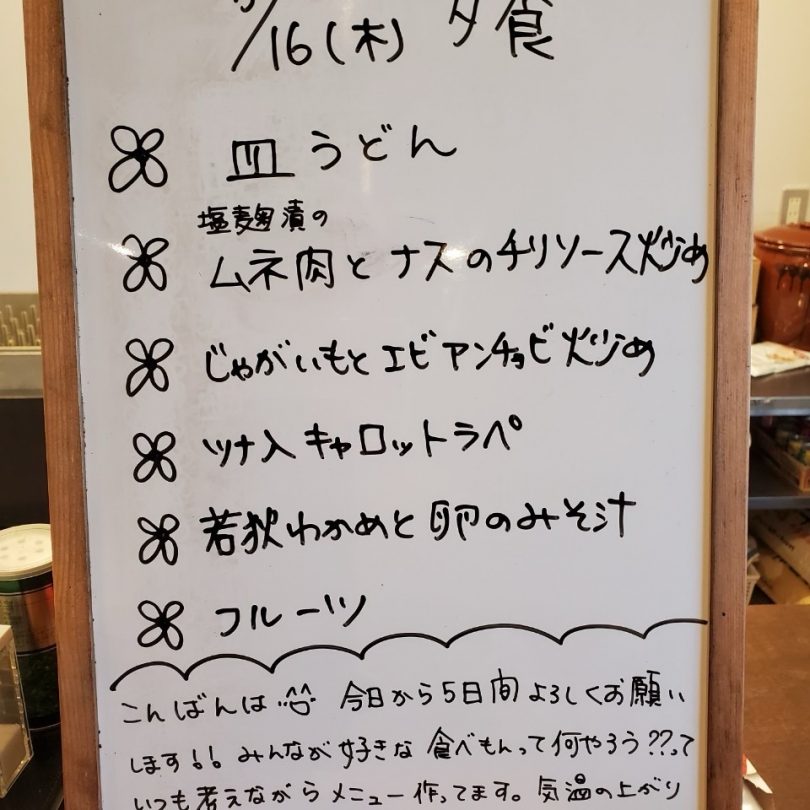 /16(木) 夕食
皿うどん
塩麹漬の
ムネ肉とナスのチリソース炒め
じゃがいもとエビアンチョビ炒め
ツナ入キャロットラペ
若狭わかめと卵のみそ汁
フルーツ
こんばんは 今日から5日間よろしくお願い
します!! みんなが好きな食べもんって何やろう??って
いつも考えながらメニュー作ってます。気温の上がり